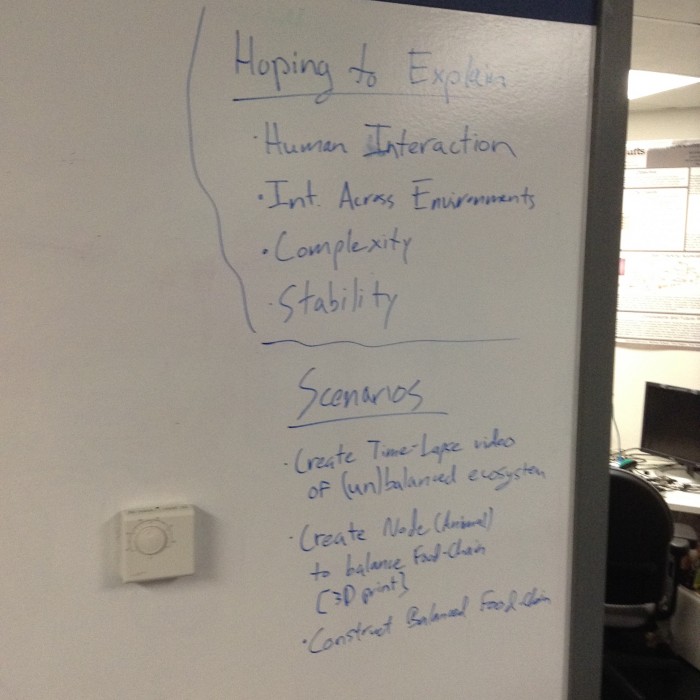 Hoping to Explain
· Human Interaction
· Int. Across Environments
· Complexity
· Stability
Scenarios
· Create Time-Lapse video
of (un)balanced ecosystem
· Create Node (Animal)
to balance Food-Chain
[3D print]
· Construct Balanced Food-Chain